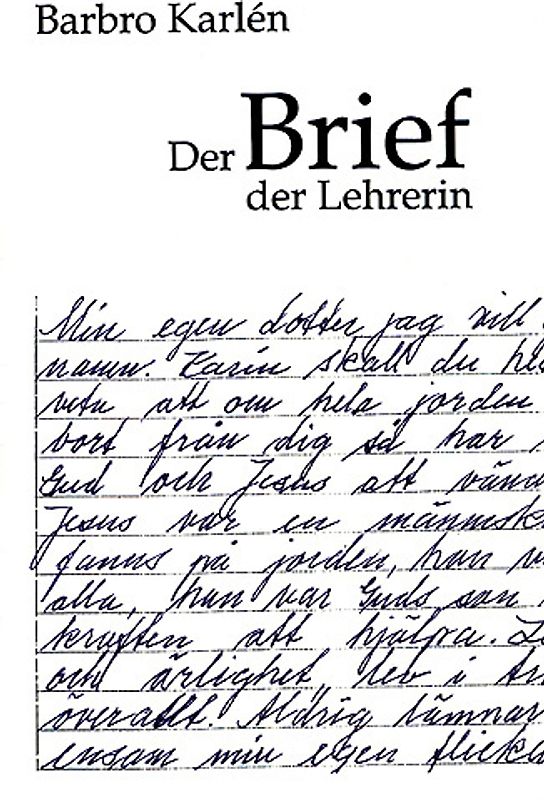 Barbro Karlén
Der Brief
der Lehrerin
Min egen dotter jag vill
namn. Karin skall du he
veta att om hela jorden
bort från dig så har
Gud och Jesus att vän
Jesus var en männsk
fanns på jorden, han v
alla, han var Guds son
kraften att hjälpa. L
och ärlighet, lev i
överallt. Aldrig lämnar
ensam min egen flicka